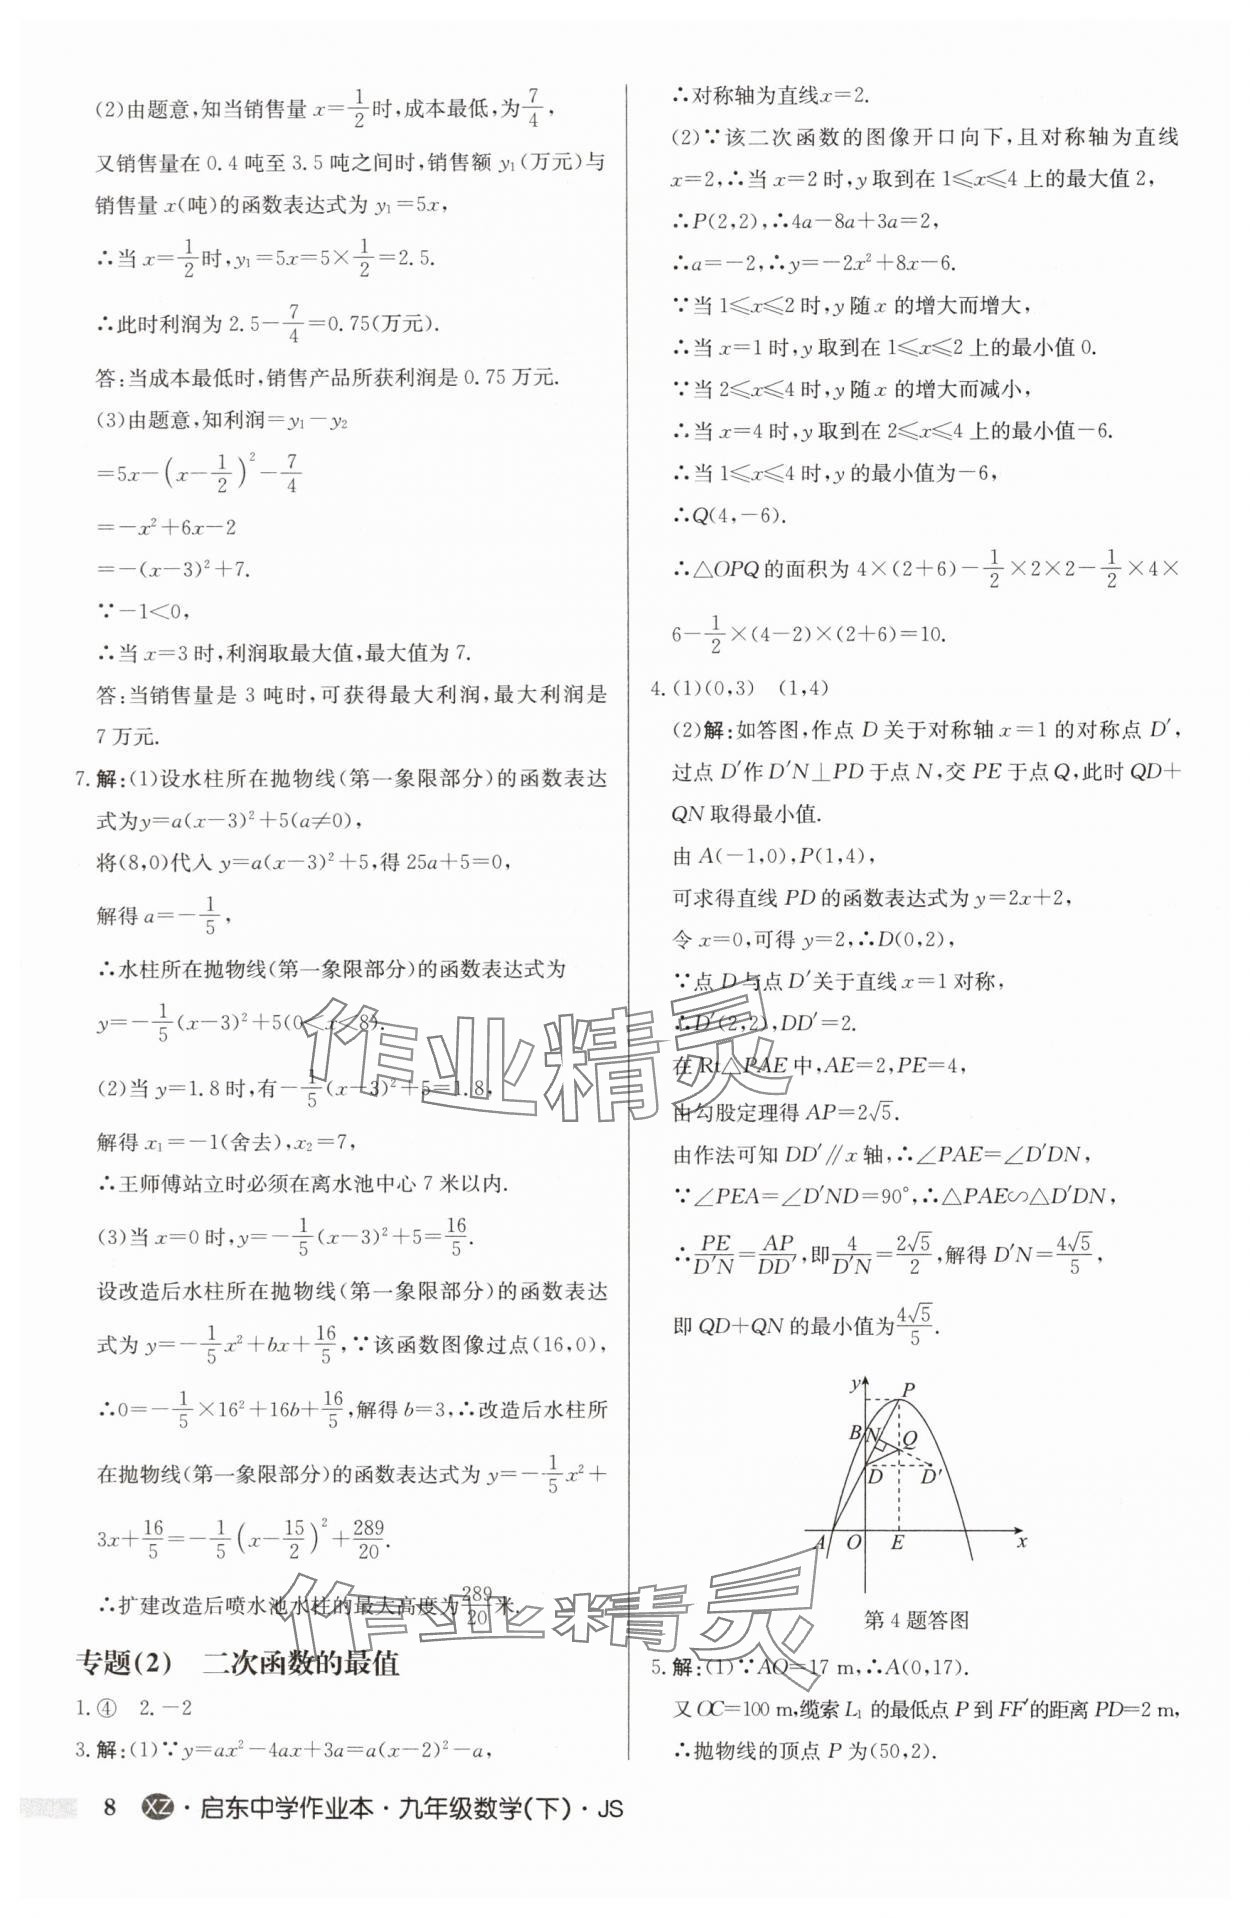 (2)由题意,知当销售量 x=1/2时,成本最低,为7/4,
又销售量在 0.4 吨至 3.5 吨之间时,销售额 y₁(万元)与
销售量 x(吨)的函数表达式为 y₁=5x,
∴当 x=1/2时,y₁=5x=5×1/2=2.5.
∴此时利润为 2.5-7/4=0.75(万元).
答:当成本最低时,销售产品所获利润是 0.75 万元.
(3)由题意,知利润=y₁-y₂
=5x-(x-1/2)²-7/4
=-x²+6x-2
=-(x-3)²+7.
∵-1<0,
∴当 x=3 时,利润取最大值,最大值为 7.
答:当销售量是 3 吨时,可获得最大利润,最大利润是
7 万元.
7.解:(1)设水柱所在抛物线(第一象限部分)的函数表达
式为y=a(x-3)²+5(a≠0),
将(8,0)代入 y=a(x-3)²+5,得 25a+5=0,
解得 a=-1/5,
∴水柱所在抛物线(第一象限部分)的函数表达式为
y=-1/5(x-3)²+5(0<x<8).
(2)当 y=1.8 时,有-1/5(x-3)²+5=1.8,
解得 x₁=-1(舍去),x₂=7,
∴王师傅站立时必须在离水池中心 7 米以内.
(3)当 x=0 时,y=-1/5(x-3)²+5=16/5.
设改造后水柱所在抛物线(第一象限部分)的函数表达
式为 y=-1/5x²+bx+16/5,∵该函数图像过点(16,0),
∴0=-1/5×16²+16b+16/5,解得 b=3,∴改造后水柱所
在抛物线(第一象限部分)的函数表达式为 y=-1/5x²+
3x+16/5=-1/5(x-15/2)²+289/20.
∴扩建改造后喷水池水柱的最大高度为289/20米.
专题(2) 二次函数的最值
1.④ 2.-2
3.解:(1)∵y=ax²-4ax+3a=a(x-2)²-a,
∴对称轴为直线x=2.
(2)∵该二次函数的图像开口向下,且对称轴为直线
x=2,∴当 x=2 时,y取到在 1⩽x⩽4 上的最大值 2,
∴P(2,2),∴4a-8a+3a=2,
∴a=-2,∴y=-2x²+8x-6.
∵当 1⩽x⩽2 时,y 随 x 的增大而增大,
∴当 x=1 时,y 取到在 1⩽x⩽2 上的最小值 0.
∵当 2⩽x⩽4 时,y 随 x 的增大而减小,
∴当 x=4 时,y 取到在 2⩽x⩽4 上的最小值-6.
∴当 1⩽x⩽4 时,y的最小值为-6,
∴Q(4,-6).
∴△OPQ的面积为 4×(2+6)-1/2×2×2-1/2×4×
6-1/2×(4-2)×(2+6)=10.
4.(1)(0,3) (1,4)
(2)解:如答图,作点 D 关于对称轴 x=1 的对称点 D′,
过点 D′作 D′N⊥PD于点 N,交 PE于点 Q,此时 QD+
QN取得最小值.
由 A(-1,0),P(1,4),
可求得直线 PD 的函数表达式为 y=2x+2,
令 x=0,可得 y=2,∴D(0,2),
∵点 D 与点 D′关于直线 x=1 对称,
∴D′(2,2),DD′=2.
在 Rt△PAE 中,AE=2,PE=4,
由勾股定理得 AP=2√5.
由作法可知 DD′∥x 轴,∴∠PAE=∠D′DN,
∵∠PEA=∠D′ND=90°,∴△PAE∽△D′DN,
∴PE/D′N=AP/DD′,即4/D′N=2√5/2,解得 D′N=4√5/5,
即 QD+QN 的最小值为4√5/5.
y
P
B
N
Q
D
D′
A
O
E
x
第 4 题答图
5.解:(1)∵AO=17 m,∴A(0,17).
又 OC=100 m,缆索 L₁ 的最低点 P 到 FF′的距离 PD=2 m,
∴抛物线的顶点 P 为(50,2).
8 XZ·启东中学作业本·九年级数学(下)·JS
作业精灵
作业精灵